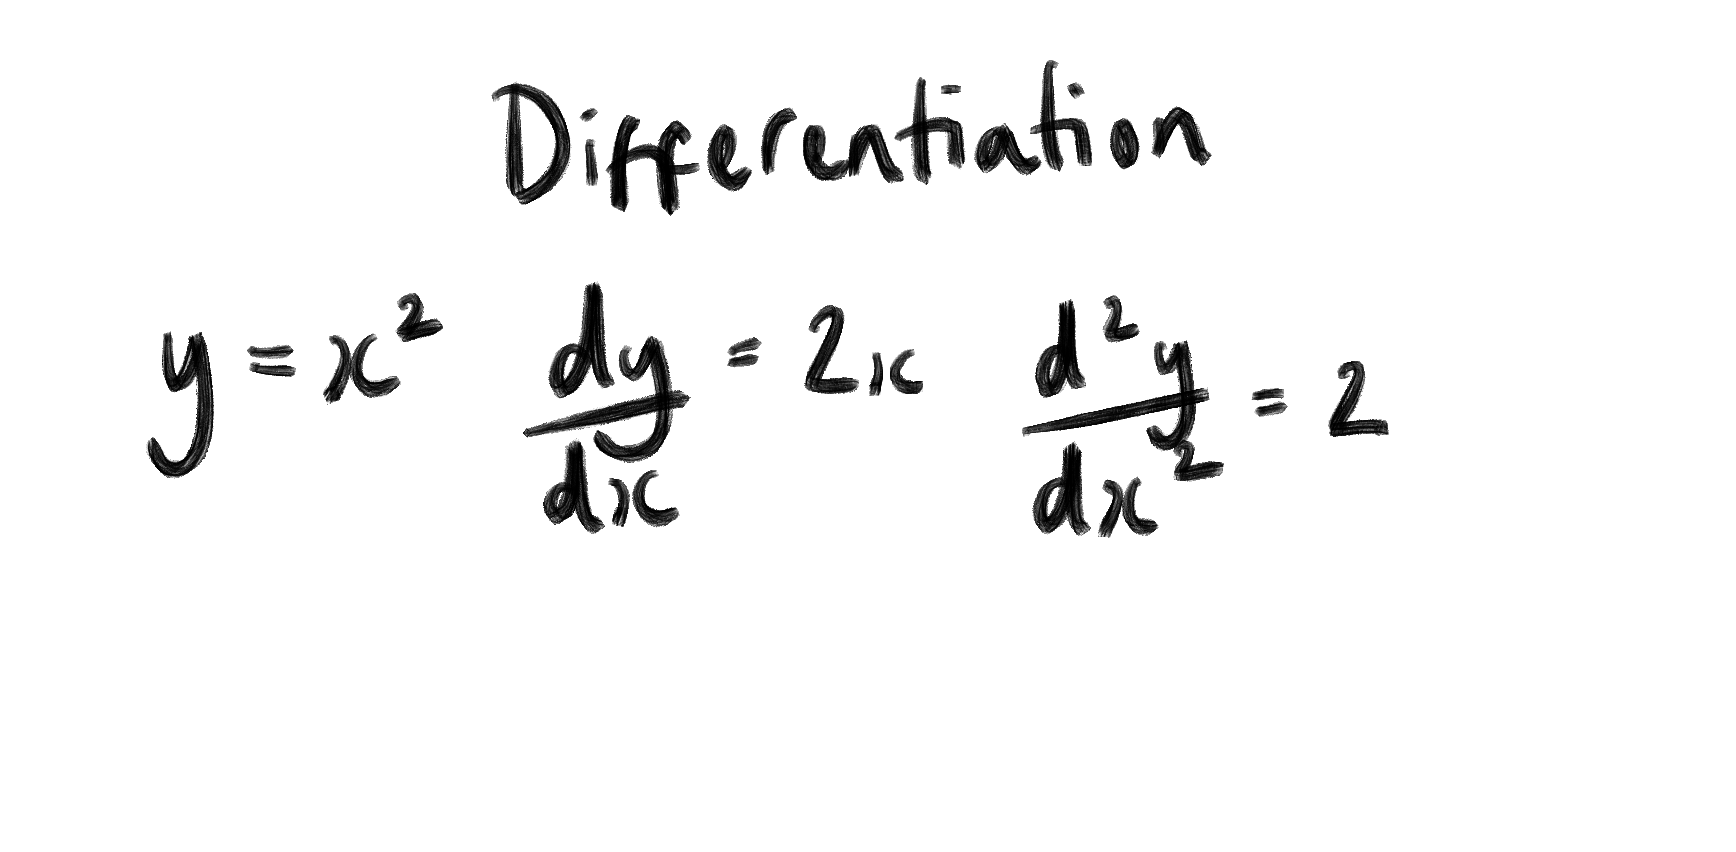 Differentiation
y = x² dy/dx = 2x d²y/dx² = 2